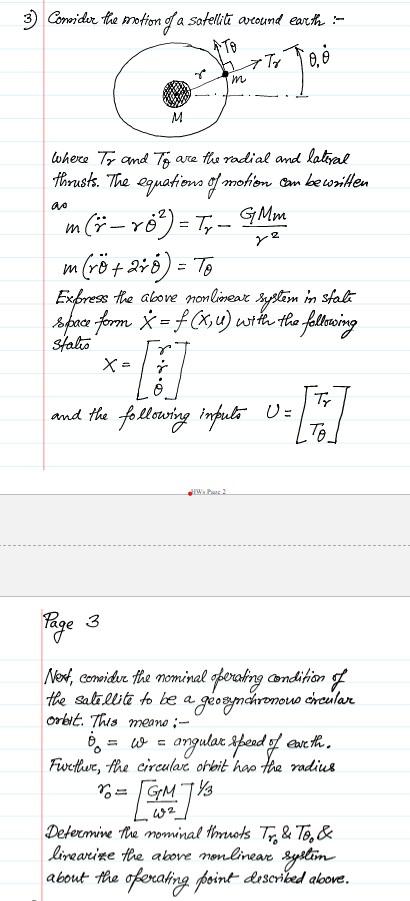 3) Consider the motion of a satellite around earth :-
Tθ
r
Tr
θ, θ̇
m
M
where Tr and Tθ are the radial and lateral
thrusts. The equations of motion can be written
as
m (r̈ - rθ̇²) = Tr - GMm/r²
m (rθ̈ + 2ṙθ̇) = Tθ
Express the above nonlinear system in state
space form Ẋ = f(X,u) with the following
states
X = [r ṙ θ̇]
and the following inputs U = [Tr Tθ]
Page 2
Page 3
Next, consider the nominal operating condition of
the satellite to be a geosynchronous circular
orbit. This means :-
θ̇₀ = ω = angular speed of earth.
Further, the circular orbit has the radius
r₀ = [GM/ω²]^1/3
Determine the nominal thrusts Tr₀ & Tθ₀ &
linearize the above nonlinear system
about the operating point described above.